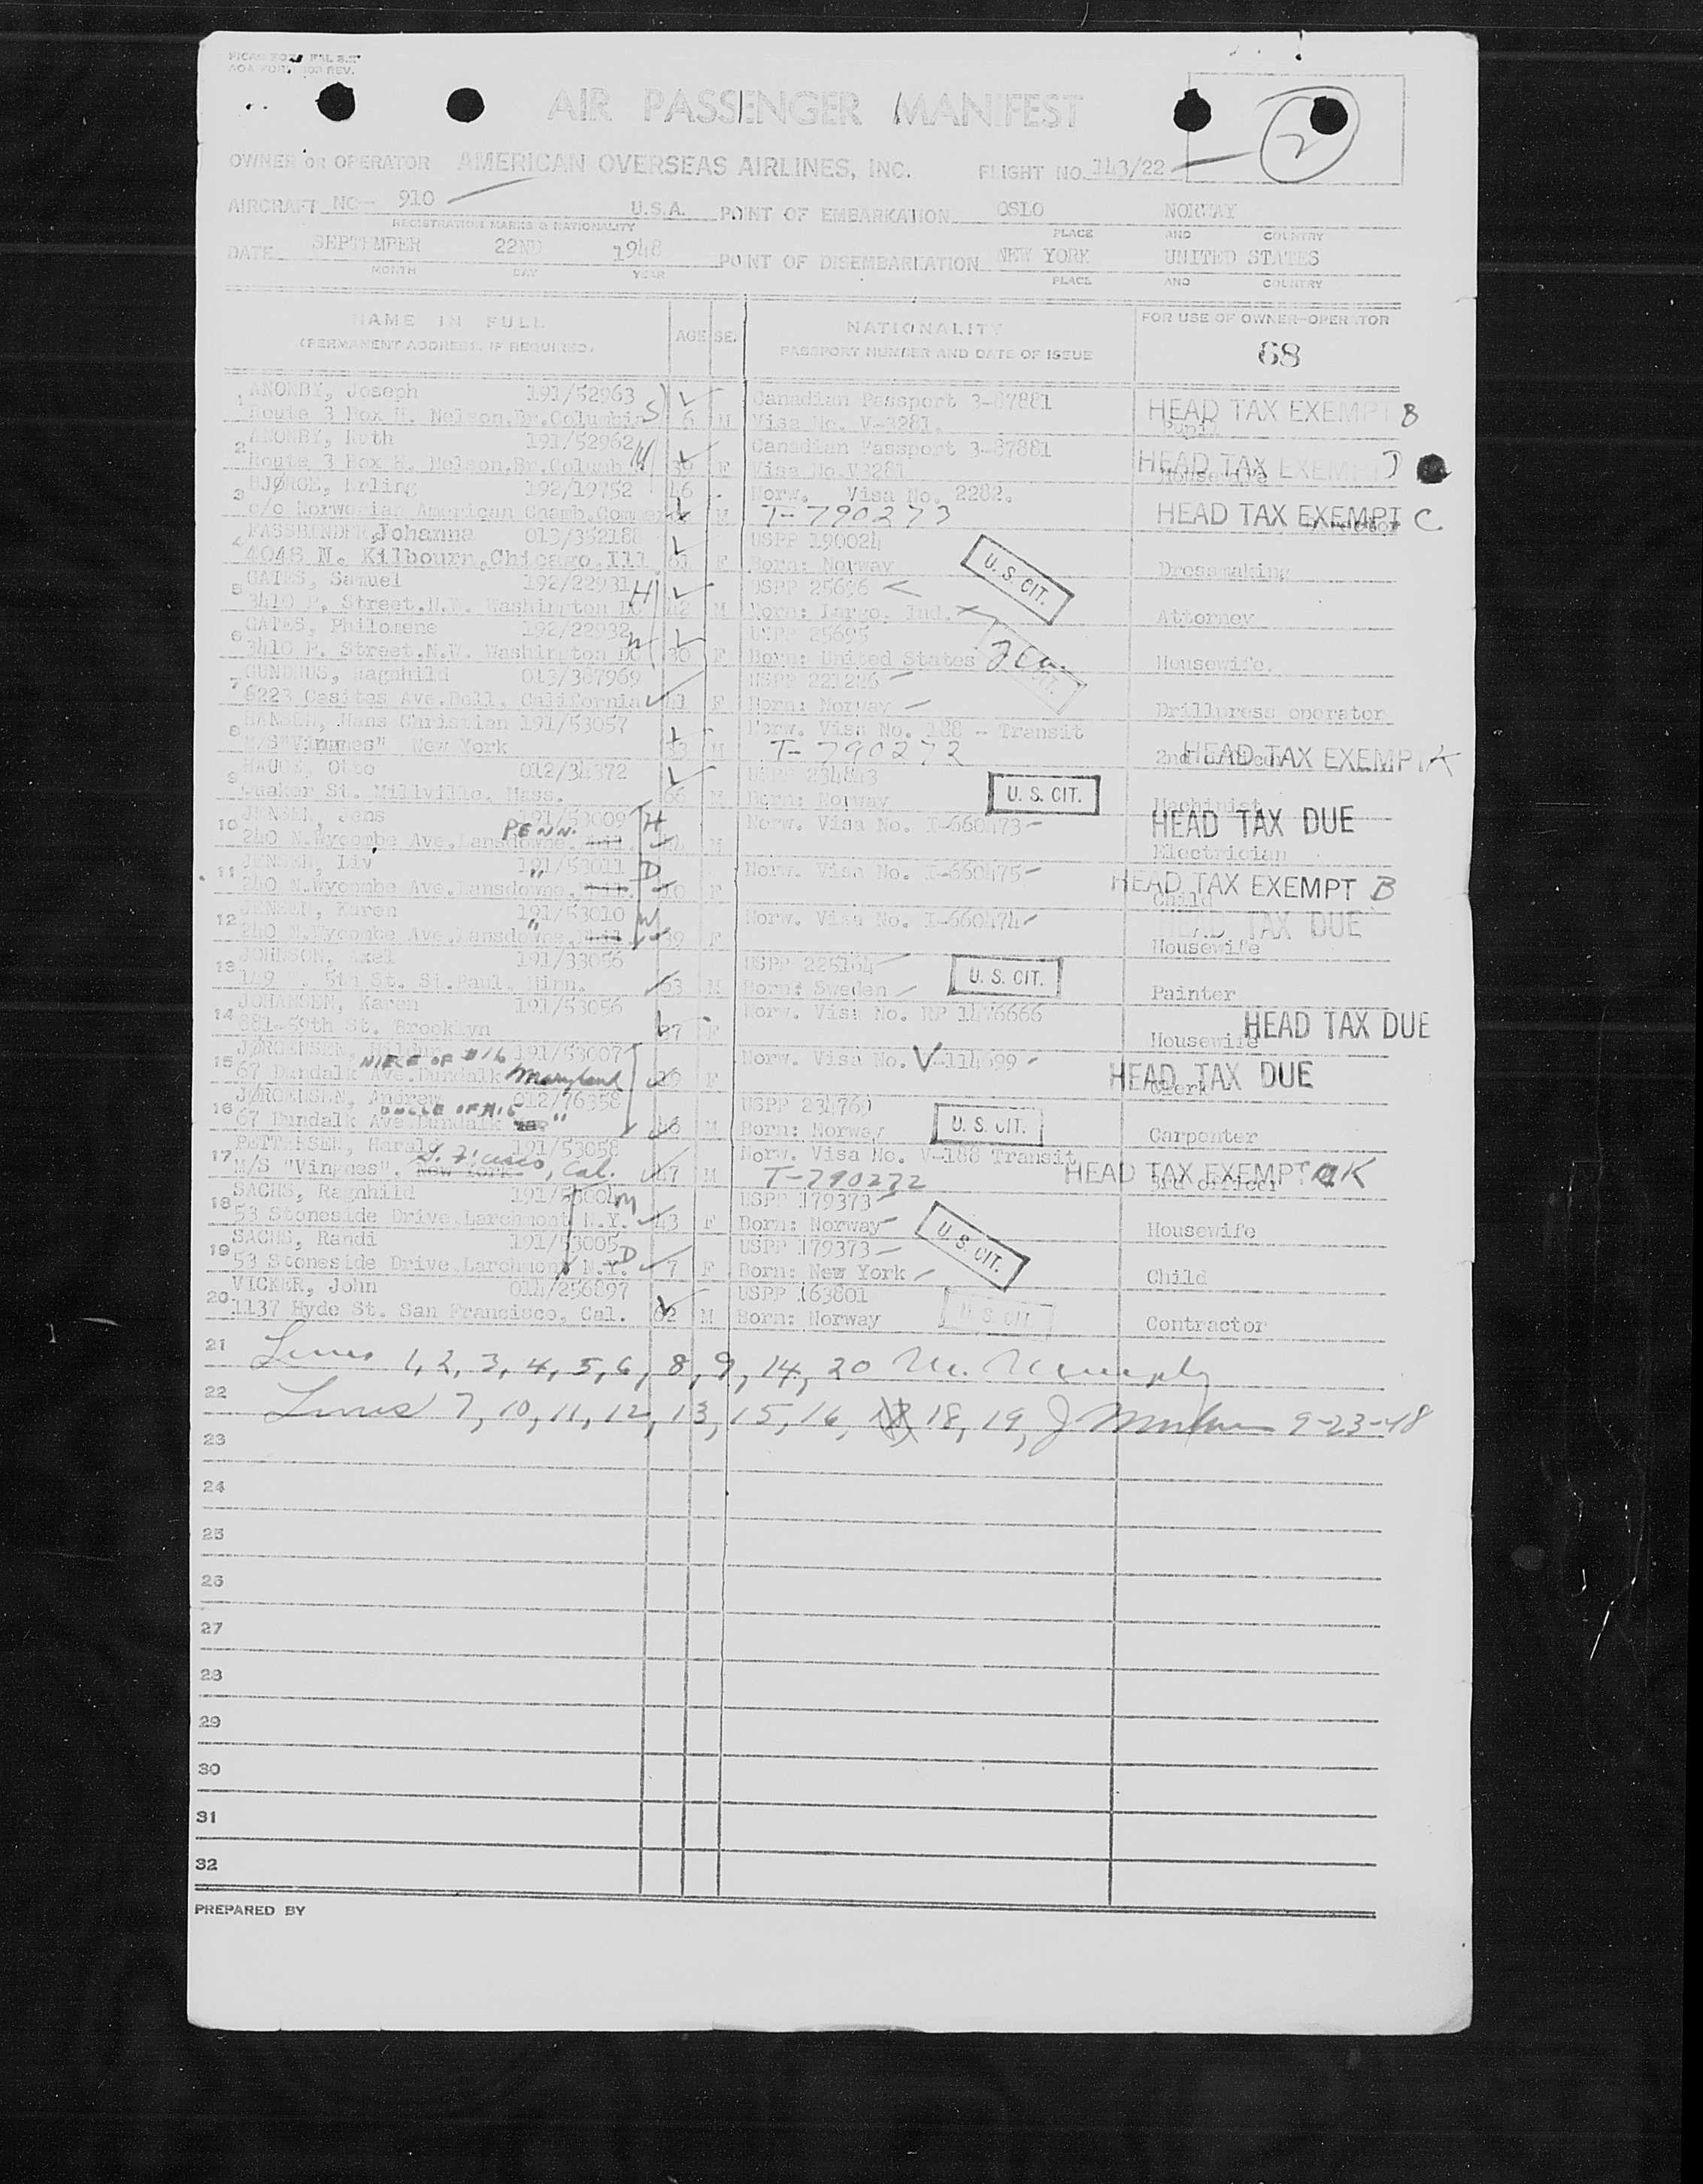 AIR PASSENGER MANIFEST
2
OWNER OR OPERATOR AMERICAN OVERSEAS AIRLINES, INC. FLIGHT NO. 143/22
AIRCRAFT NO- 910 U.S.A. POINT OF EMBARKATION OSLO NORWAY
REGISTRATION MARKS & NATIONALITY PLACE AND COUNTRY
DATE SEPTEMBER 22ND 1948 POINT OF DISEMBARKATION NEW YORK UNITED STATES
MONTH DAY YEAR PLACE AND COUNTRY
NAME IN FULL AGE SEX NATIONALITY FOR USE OF OWNER-OPERATOR
(PERMANENT ADDRESS, IF REQUIRED) PASSPORT NUMBER AND DATE OF ISSUE 68
1 ANONBY, Joseph 191/52963 Canadian Passport 3-87881 HEAD TAX EXEMPT B
Route 3 Box H. Nelson, Br.Columbia S 6 M Visa No. V-3281. Pupil
2 ANONBY, Ruth 191/52962 Canadian Passport 3-87881 HEAD TAX EXEMPT
Route 3 Box H. Nelson, Br.Columb. 39 F Visa No.V3281 Housewife
3 BJØRGE, Erling 192/19752 46 Norw. Visa No. 2282.
c/o Norwegian American Chamb.Commer M T-790273 HEAD TAX EXEMPT C
4 FASSBINDER, Johanna 013/352188 USPP 190024 U. S. CIT.
4048 N. Kilbourn, Chicago, Ill. 61 F Born: Norway Dressmaking
5 GATES, Samuel 192/22931 H USPP 25696
3410 P. Street.N.W. Washington DC 42 M Born: Largo. Ind. Attorney
6 GATES, Philomene 192/22932 W USPP 25695
3410 P. Street.N.W. Washington DC 30 F Born: United States Housewife.
7 GUNDHUS, Ragnhild 013/387969 USPP 221226
6223 Casitas Ave.Bell, California 41 F Born: Norway Drillpress operator
8 HANSEN, Hans Christian 191/53057 Norw. Visa No. 188 - Transit
M/S"Vingnes" New York 33 M T-790272 2nd HEAD TAX EXEMPT K
9 HAUGE, Otto 012/34372 USPP 234843 U. S. CIT.
Quaker St. Millville, Mass. 66 M Born: Norway Machinist
10 JENSEN, Jens 191/53009 H Norw. Visa No. I-660473 HEAD TAX DUE
240 N.Wycombe Ave.Lansdowne. PENN. 44 M Electrician
11 JENSEN, Liv 191/53011 D Norw. Visa No. I-660475 HEAD TAX EXEMPT B
240 N.Wycombe Ave.Lansdowne. " 10 F Child
12 JENSEN, Karen 191/53010 W Norw. Visa No. I-660474 HEAD TAX DUE
240 N.Wycombe Ave.Lansdowne. " 39 F Housewife
13 JOHNSON, Axel 191/33056 USPP 225164 U. S. CIT.
149 . 5th St. St.Paul, Minn. 63 M Born: Sweden Painter
14 JOHANSEN, Karen 191/53056 Norw. Visa No. RP 1476666 HEAD TAX DUE
681-59th St. Brooklyn 37 F Housewife
15 JØRGENSEN, NIECE OF #16 191/53007 Norw. Visa No. V-114699 HEAD TAX DUE
67 Dundalk Ave.Dundalk Maryland 19 F Clerk
16 JØRGENSEN, Andrew 012/76358 USPP 234769 U. S. CIT.
67 Dundalk Ave.Dundalk UNCLE OF #15 " 46 M Born: Norway Carpenter
17 PETTERSEN, Harald 191/53058 Norw. Visa No. V-188 Transit
M/S "Vingnes", New York S. F'cisco, Cal. 47 M T-790272 HEAD TAX EXEMPT K 3rd Officer
18 SACHS, Ragnhild 191/53004 M USPP 179373 U. S. CIT.
53 Stoneside Drive.Larchmont N.Y. 43 F Born: Norway Housewife
19 SACHS, Randi 191/53005 D USPP 179373
53 Stoneside Drive.Larchmont N.Y. 7 F Born: New York Child
20 VICKER, John 014/256897 USPP 163801 U. S. CIT.
1137 Hyde St. San Francisco, Cal. 62 M Born: Norway Contractor
21 Lines 1, 2, 3, 4, 5, 6, 8, 9, 14, 20
22 Lines 7, 10, 11, 12, 13, 15, 16, 18, 19, J 9-23-48
23
24
25
26
27
28
29
30
31
32
PREPARED BY